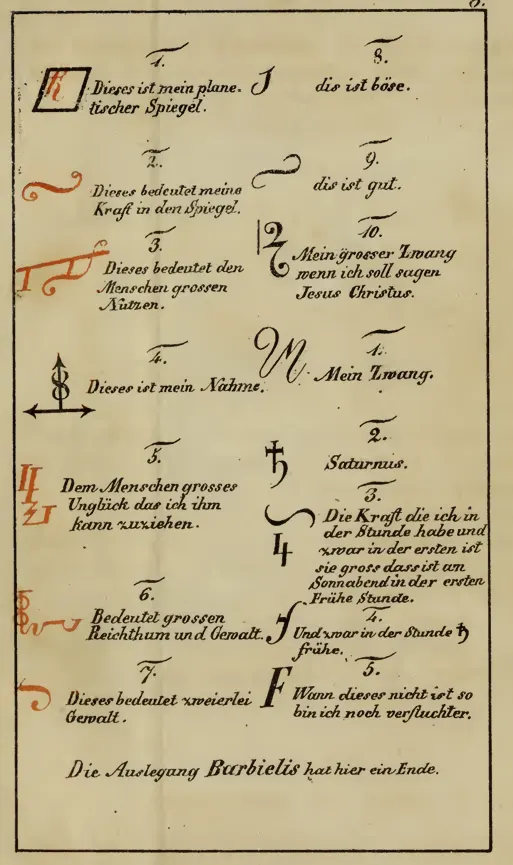 8.
1.
Dieses ist mein plane-
tischer Spiegel.
2.
Dieses bedeutet meine
Kraft in den Spiegel.
3.
Dieses bedeutet den
Menschen grossen
Nutzen.
4.
Dieses ist mein Nahme.
5.
Dem Menschen grosses
Unglück das ich ihm
kann zuziehen.
6.
Bedeutet grossen
Reichthum und Gewalt.
7.
Dieses bedeutet zweierlei
Gewalt.
8.
dis ist böse.
9.
dis ist gut.
10.
Mein grosser Zwang
wenn ich soll sagen
Jesus Christus.
1.
Mein Zwang.
2.
♄ Saturnus.
3.
Die Kraft die ich in
der Stunde habe und
♃ zwar in der ersten ist
sie gross dass ist am
Sonnabend in der ersten
Frühe Stunde.
4.
Und zwar in der Stunde ♄
frühe.
5.
F Wann dieses nicht ist so
bin ich noch verfluchter.
Die Auslegang Barbielis hat hier ein Ende.